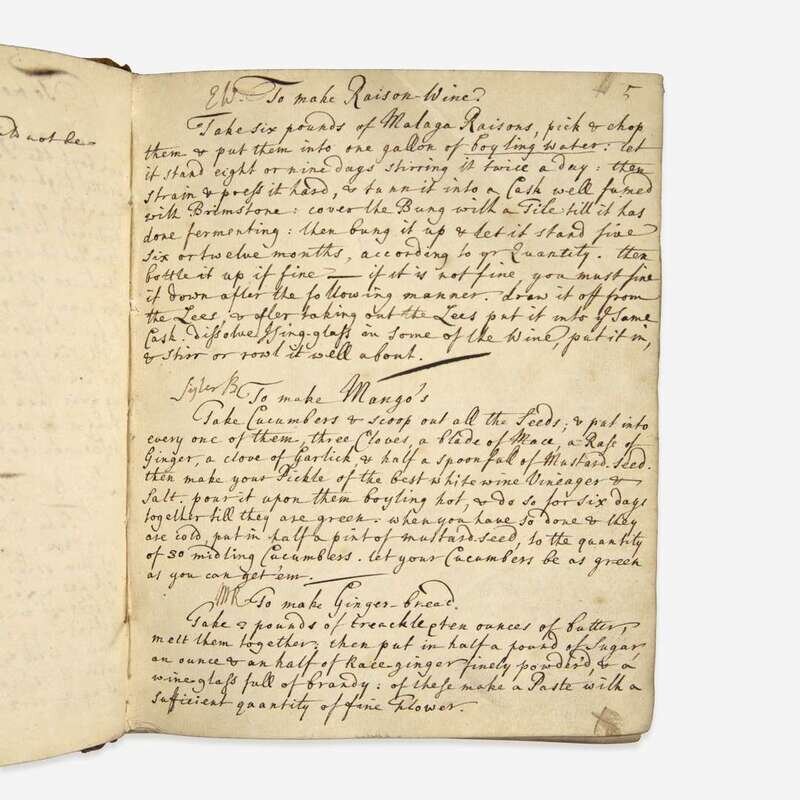 ld not be
5
EW. To make Raison-Wine.
Take six pounds of Malaga Raisons, pick & chop
them & put them into one gallon of boyling water: let
it stand eight or nine days stirring it twice a day: then
strain & press it hard, & tunn it into a Cask well fumed
with Brimstone: cover the Bung with a Tile till it has
done fermenting: then bung it up & let it stand five
six or twelve months, according to yr Quantity. then
bottle it up if fine — if it is not fine, you must fine
it down after the following manner. draw it off from
the Lees, & after taking out the Lees put it into ye same
Cask. Dissolve Ising-glass in some of the Wine, put it in,
& stirr or rowl it well about.
Sister B To make Mango's
Take Cucumbers & scoop out all the Seeds; & put into
every one of them, three Cloves, a blade of Mace, a Rase of
Ginger, a clove of Garlick, & half a spoonfull of Mustard-seed.
then make your Pickle of the best white wine Vineager &
Salt. pour it upon them boyling hot, & do so for six days
together till they are green. when you have so done & they
are cold, put in half a pint of mustard-seed, to the quantity
of 30 midling Cucumbers. let your Cucumbers be as green
as you can get 'em.
MR To make Ginger-bread.
Take 2 pounds of treackle & ten ounces of butter,
melt them together: then put in half a pound of Sugar
an ounce & an half of Race-ginger finely powder'd, & a
wine-glass full of brandy: of these make a Paste with a
sufficient quantity of fine Flower.